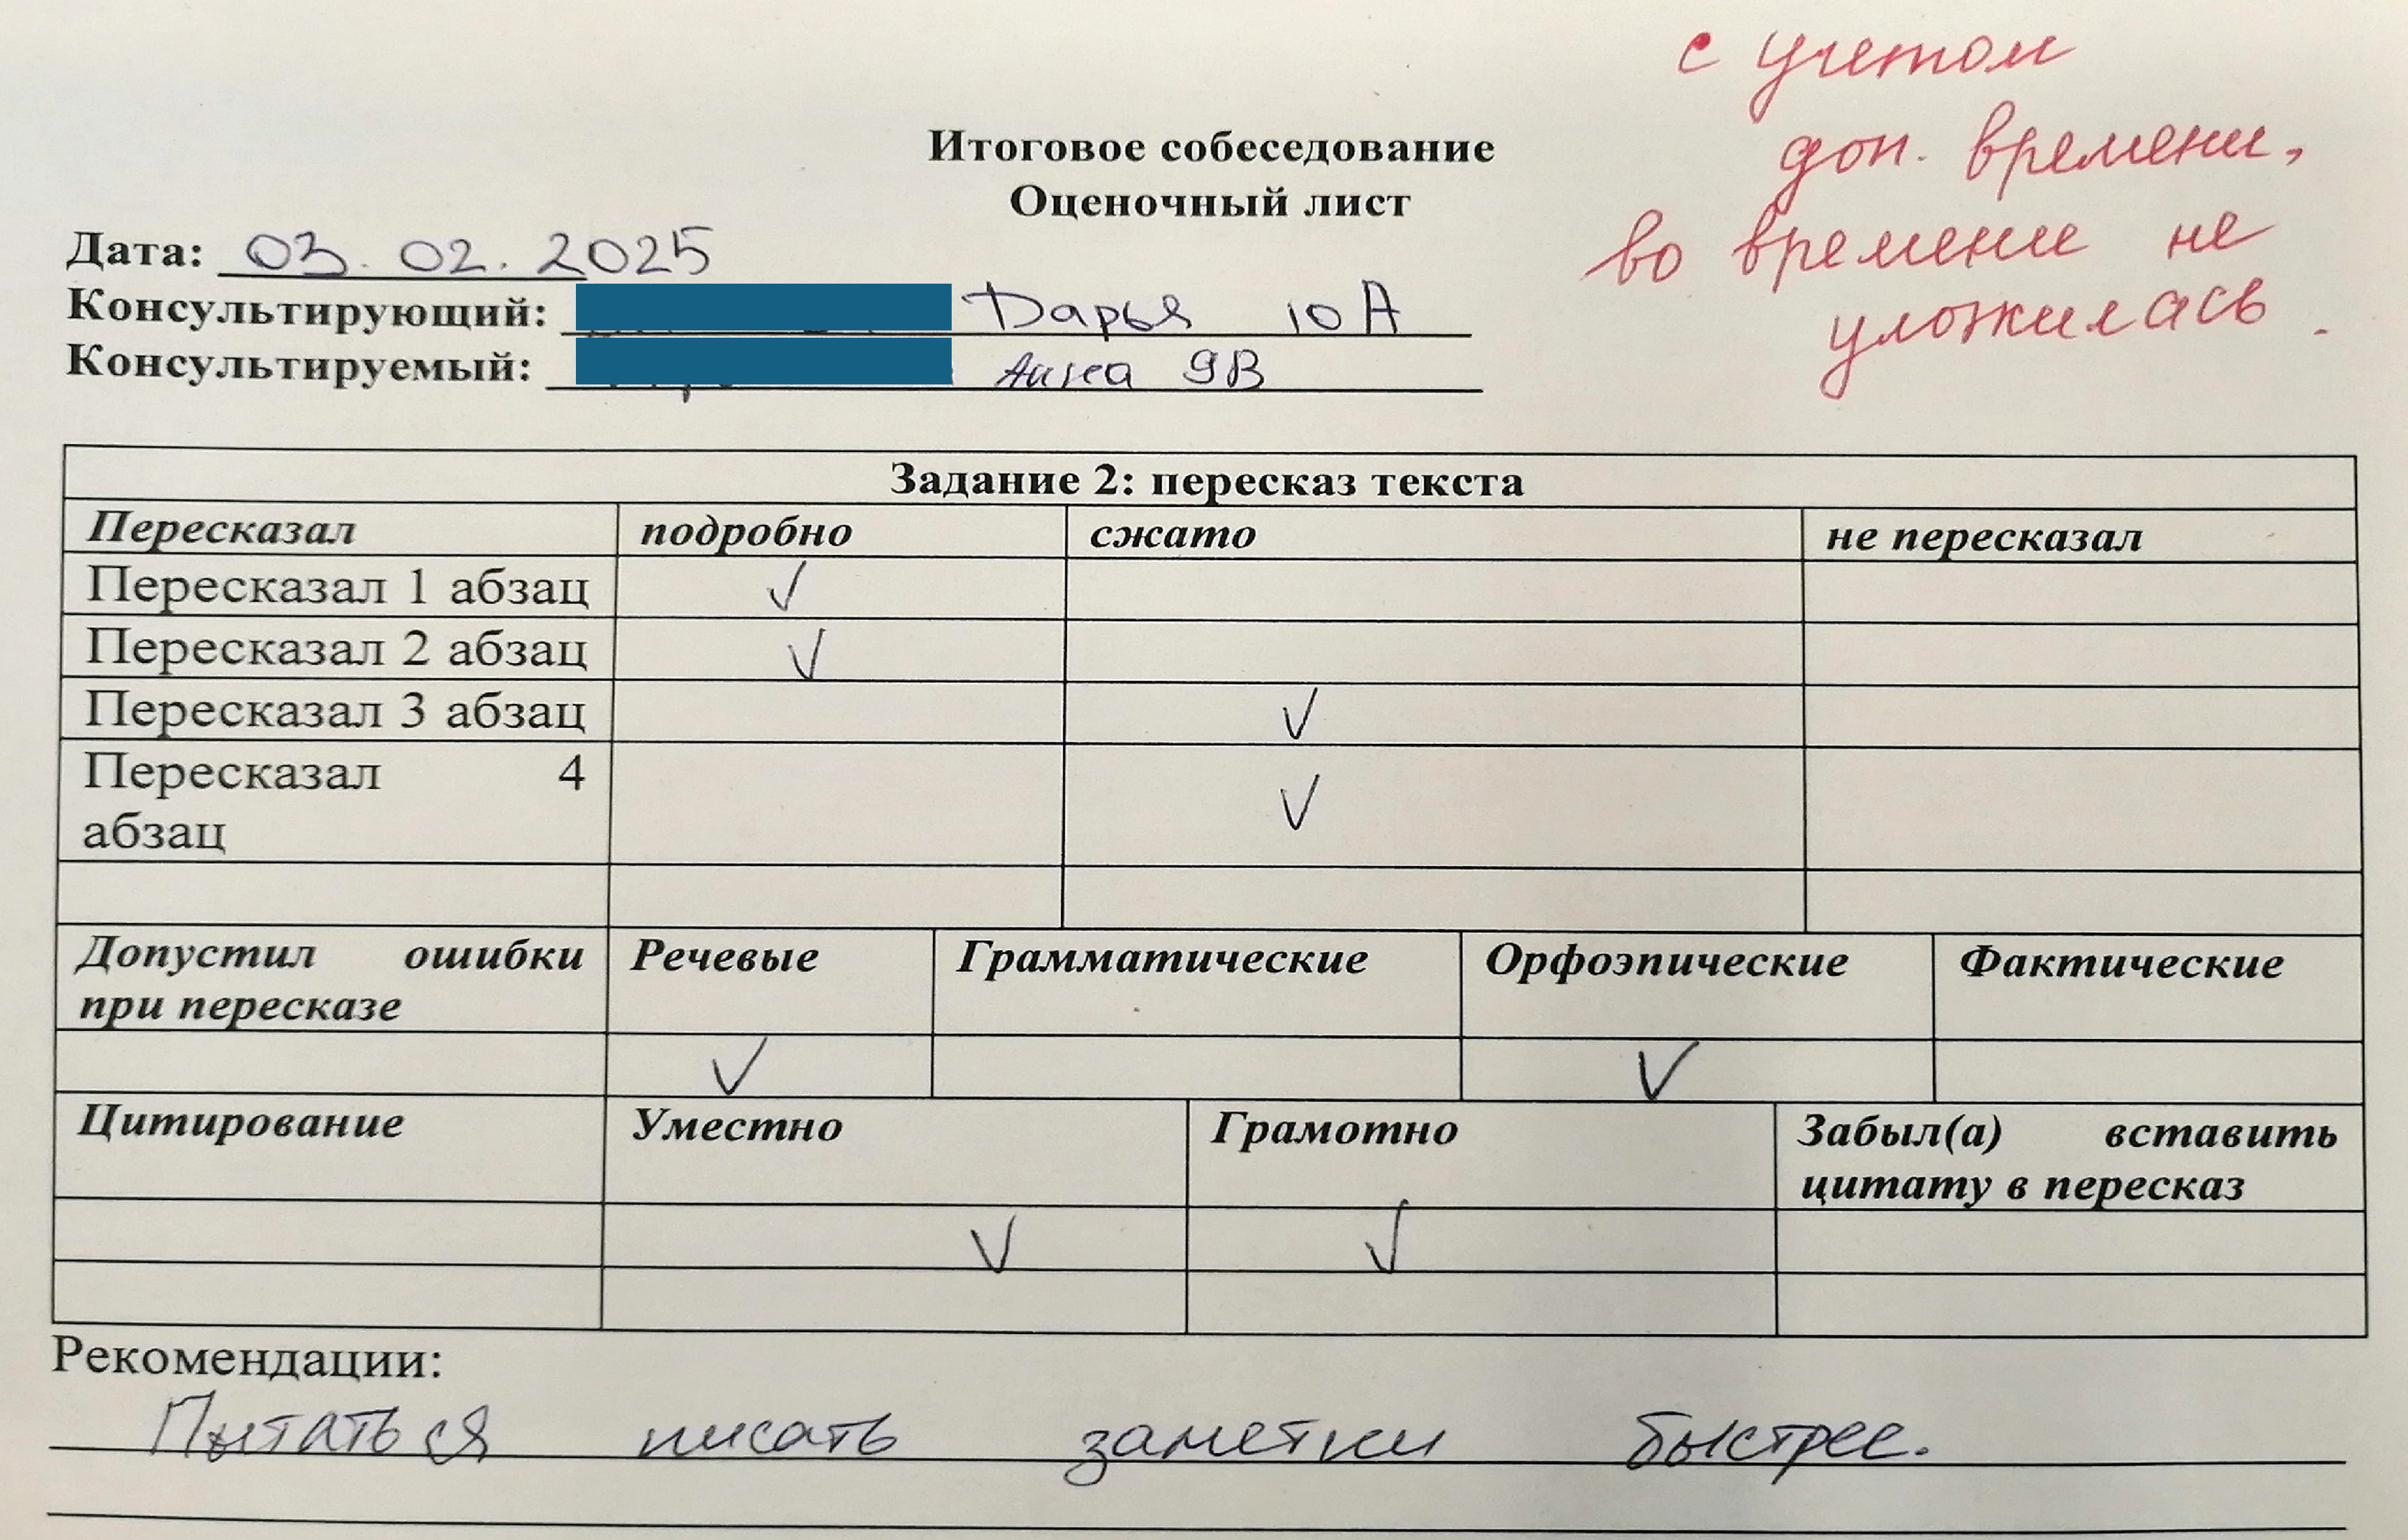 с учетом
доп. времени,
во времени не
уложилась.
Итоговое собеседование
Оценочный лист
Дата: 03.02.2025
Консультирующий: Дарья 10 А
Консультируемый: Анна 9В
Задание 2: пересказ текста
Пересказал подробно сжато не пересказал
Пересказал 1 абзац √
Пересказал 2 абзац √
Пересказал 3 абзац √
Пересказал 4
абзац √
Допустил ошибки Речевые Грамматические Орфоэпические Фактические
при пересказе
√ √
Цитирование Уместно Грамотно Забыл(а) вставить
цитату в пересказ
√ √
Рекомендации:
Пытаться писать заметки быстрее.